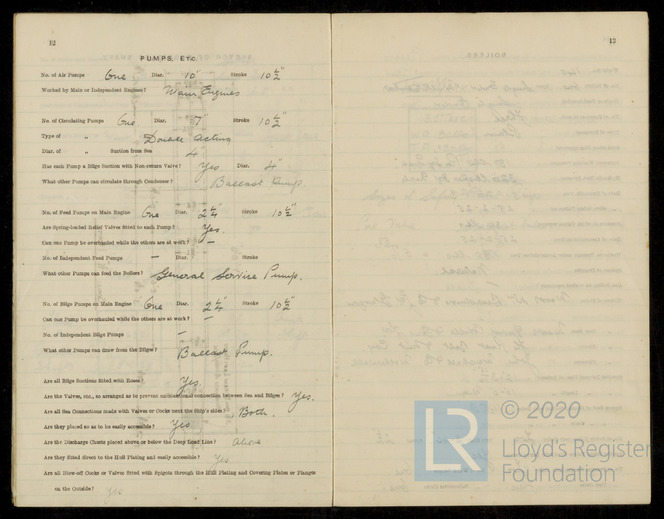 12
PUMPS, ETC.
No. of Air Pumps One Diar. 10" Stroke 10½"
Worked by Main or Independent Engines? Main Engines
No. of Circulating Pumps One Diar. Stroke 10½"
Type of " Double Acting
Diar. of " Suction from Sea 4"
Has each Pump a Bilge Suction with Non-return Valve? Yes Diar. 4"
What other Pumps can circulate through Condenser? Ballast Pump
No. of Feed Pumps on Main Engine One Diar. 2¼" Stroke 10½"
Are Spring-loaded Relief Valves fitted to each Pump? Yes.
Can one Pump be overhauled while the others are at work? —
No. of Independent Feed Pumps — Diar. Stroke
What other Pumps can feed the Boilers? General Service Pump.
No. of Bilge Pumps on Main Engine One Diar. 2¼" Stroke 10½"
Can one Pump be overhauled while the others are at work? —
No. of Independent Bilge Pumps —
What other Pumps can draw from the Bilges? Ballast Pump.
Are all Bilge Suctions fitted with Roses? Yes.
Are the Valves, etc., so arranged as to prevent unintentional connection between Sea and Bilges? Yes.
Are all Sea Connections made with Valves or Cocks next the Ship's sides? Both.
Are they placed so as to be easily accessible? Yes
Are the Discharge Chests placed above or below the Deep Load Line? Above
Are they fitted direct to the Hull Plating and easily accessible? Yes
Are all Blow-off Cocks or Valves fitted with Spigots through the Hull Plating and Covering Plates or Flanges
on the Outside? Yes
13
LR
© 2020
Lloyd's Register
Foundation